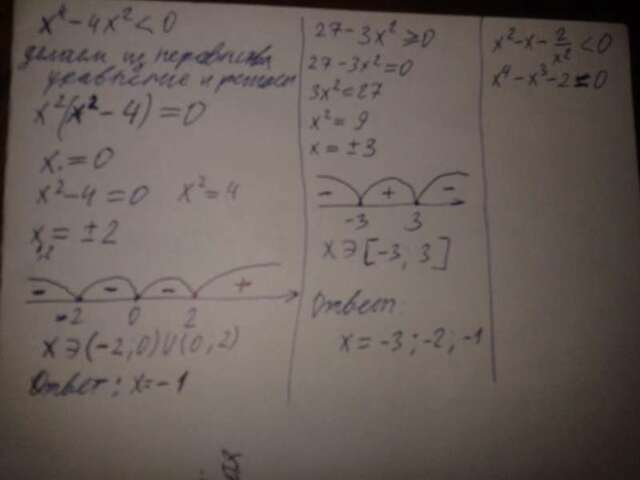 x⁴ - 4x² < 0
делаем из неравенства
уравнение и решаем
x²(x² - 4) = 0
x₁ = 0
x² - 4 = 0 x² = 4
x = ±2
- - - +
-2 0 2
x ∋ (-2, 0) U (0, 2)
Ответ: x = -1
27 - 3x² ≥ 0
27 - 3x² = 0
3x² = 27
x² = 9
x = ±3
- + -
-3 3
x ∋ [-3; 3]
Ответ:
x = -3; -2; -1
x² - x - 2/x² < 0
x⁴ - x³ - 2 = 0